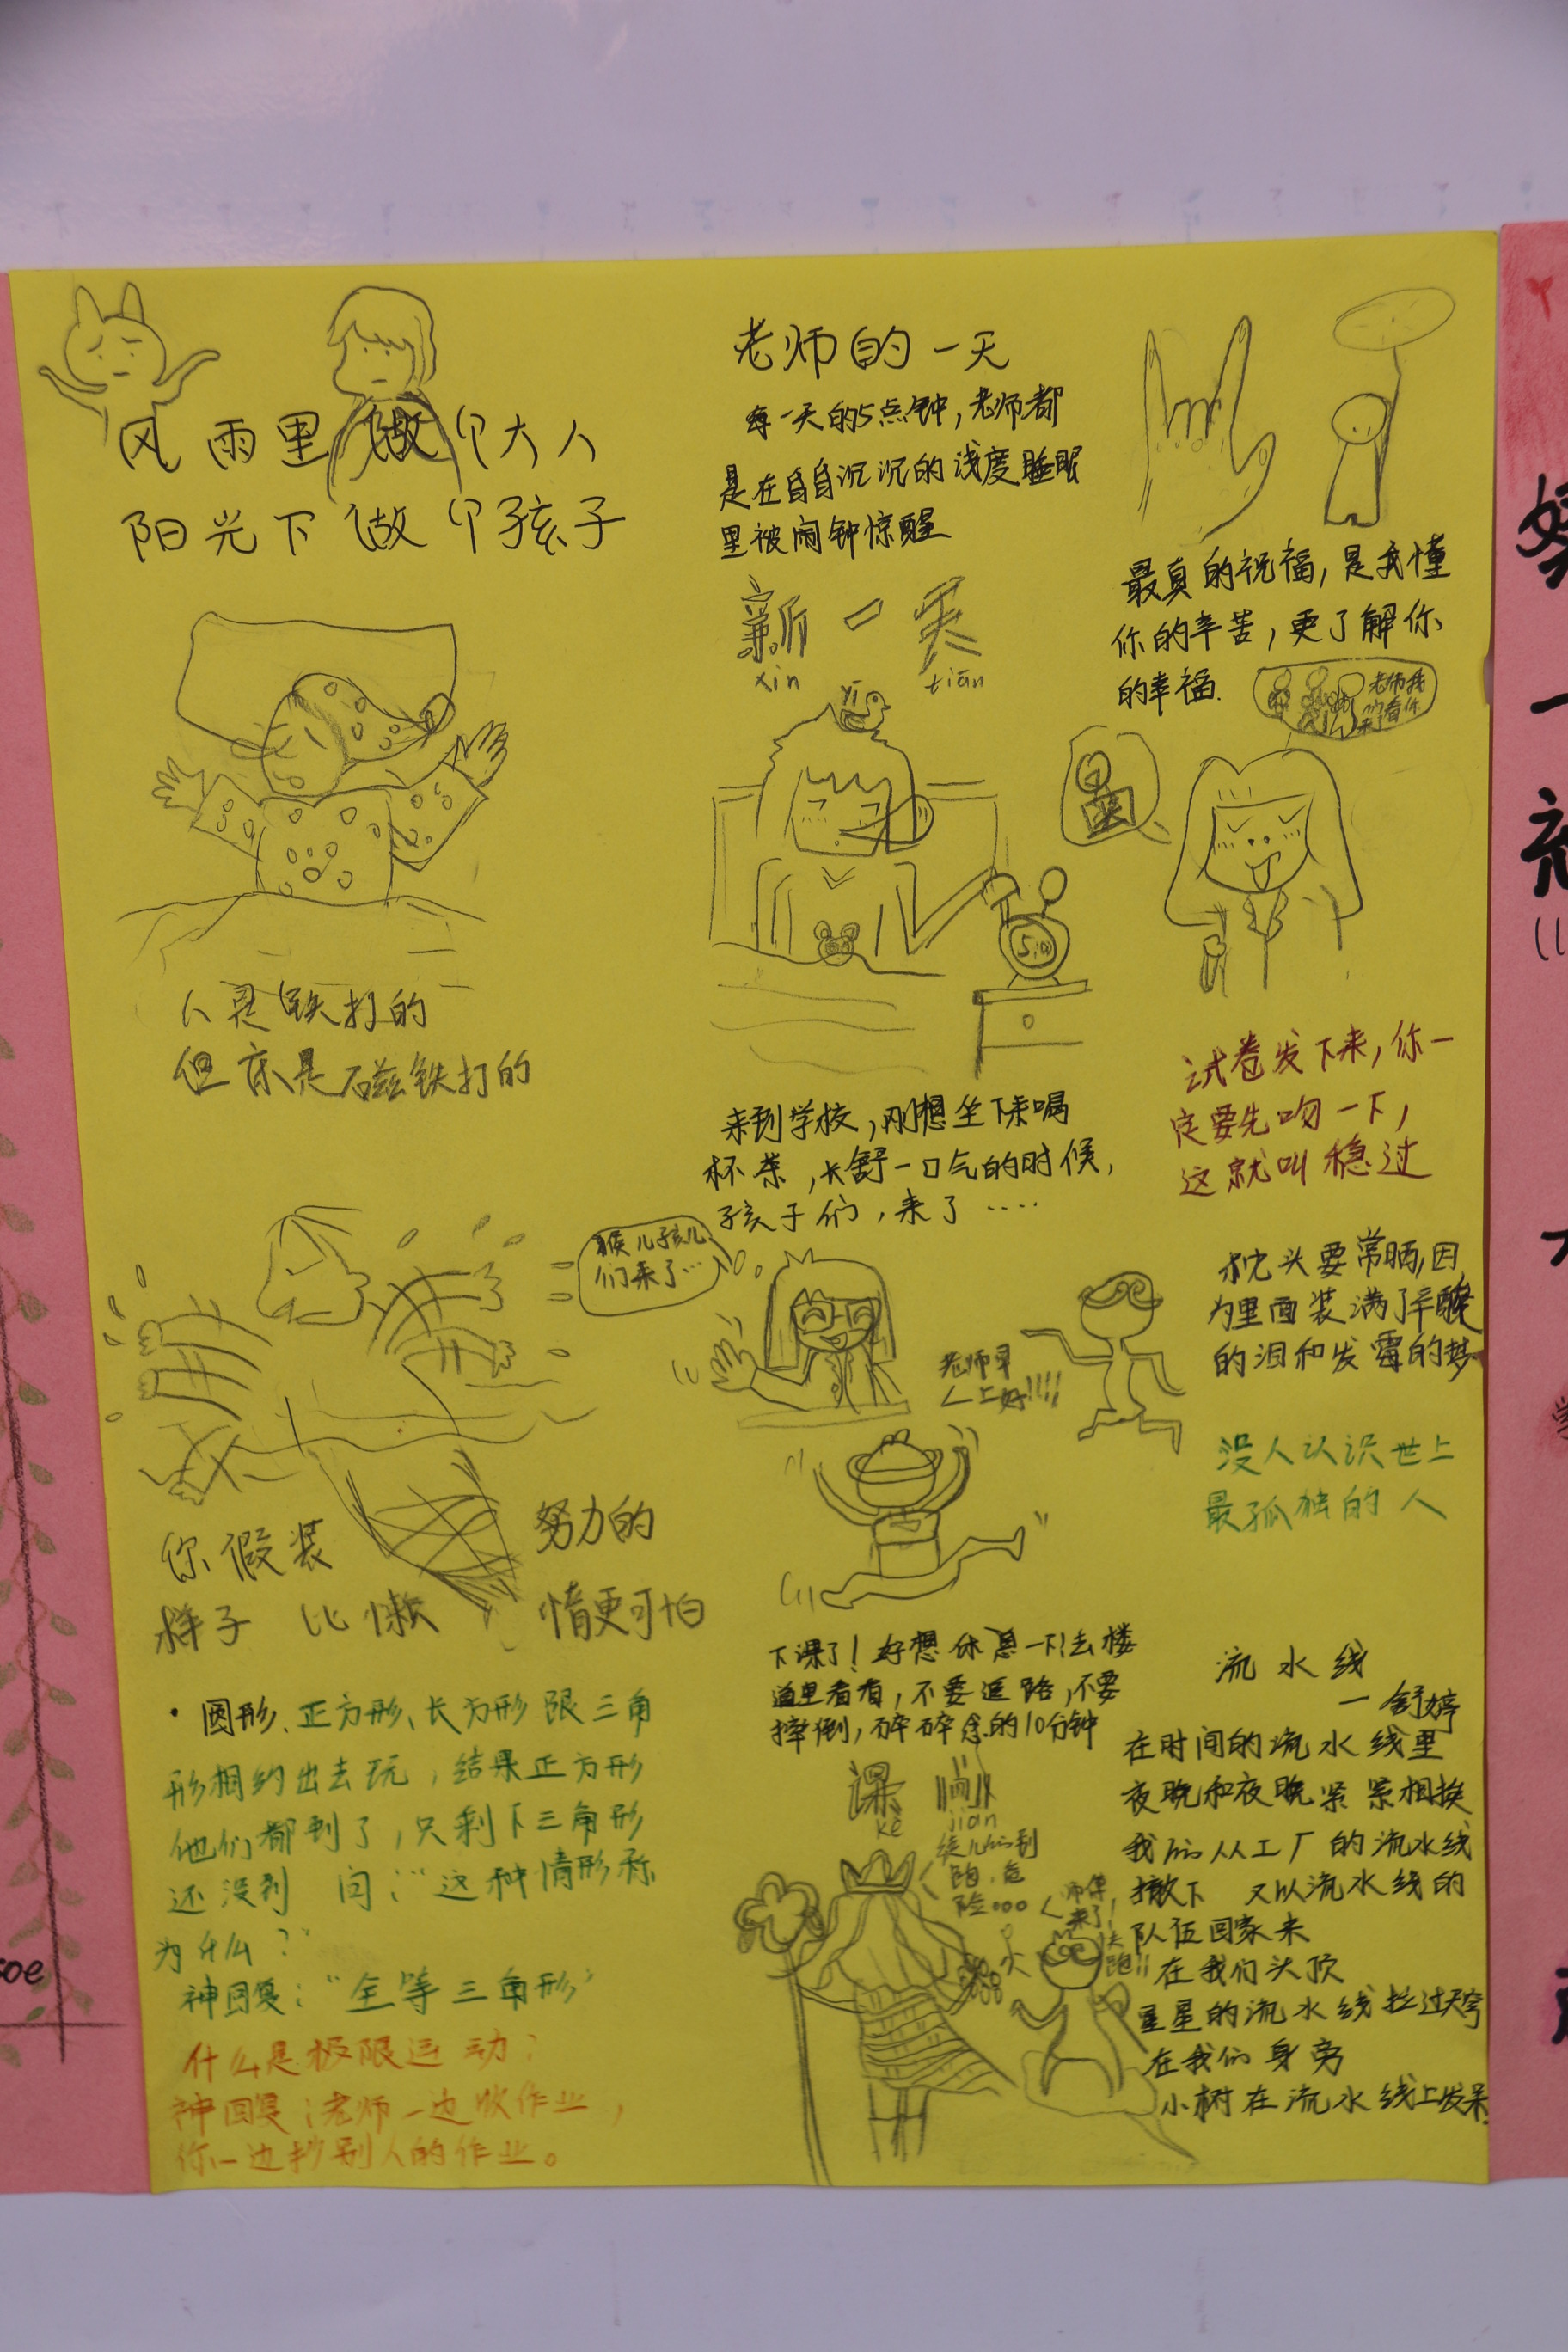 风雨里做个大人
阳光下做个孩子
人是铁打的
但床是磁铁打的
你假装 努力的
样子 比懒 惰更可怕
·圆形、正方形、长方形跟三角
形相约出去玩，结果正方形
他们都到了，只剩下三角形
还没到 问：“这种情形称
为什么？”
神回复：“全等三角形”
什么是极限运动？
神回复：老师一边收作业，
你一边抄别人的作业。
老师的一天
每一天的5点钟，老师都
是在昏昏沉沉的浅度睡眠
里被闹钟惊醒
新一天
xin yi tiān
来到学校，刚想坐下来喝
杯茶，长舒一口气的时候，
孩子们，来了……
猴儿孩儿
们来了…
老师早
上好!!!!
下课了！好想休息一下！去楼
道里看看，不要逗路，不要
摔倒，碎碎念的10分钟
课间
kè jian
徒儿们别
跑，危
险。。。
师傅
来了！
快
跑!!
最真的祝福，是我懂
你的辛苦，更了解你
的幸福.
老师我
们看你
来了
试卷发下来，你一
定要先吻一下，
这就叫稳过
枕头要常晒，因
为里面装满了辛酸
的泪和发霉的梦
没人认识世上
最孤独的人
流水线
—舒婷
在时间的流水线里
夜晚和夜晚紧紧相挨
我们从工厂的流水线
撤下 又以流水线的
队伍回家来
在我们头顶
星星的流水线拉过天穹
在我们身旁
小树在流水线上发呆